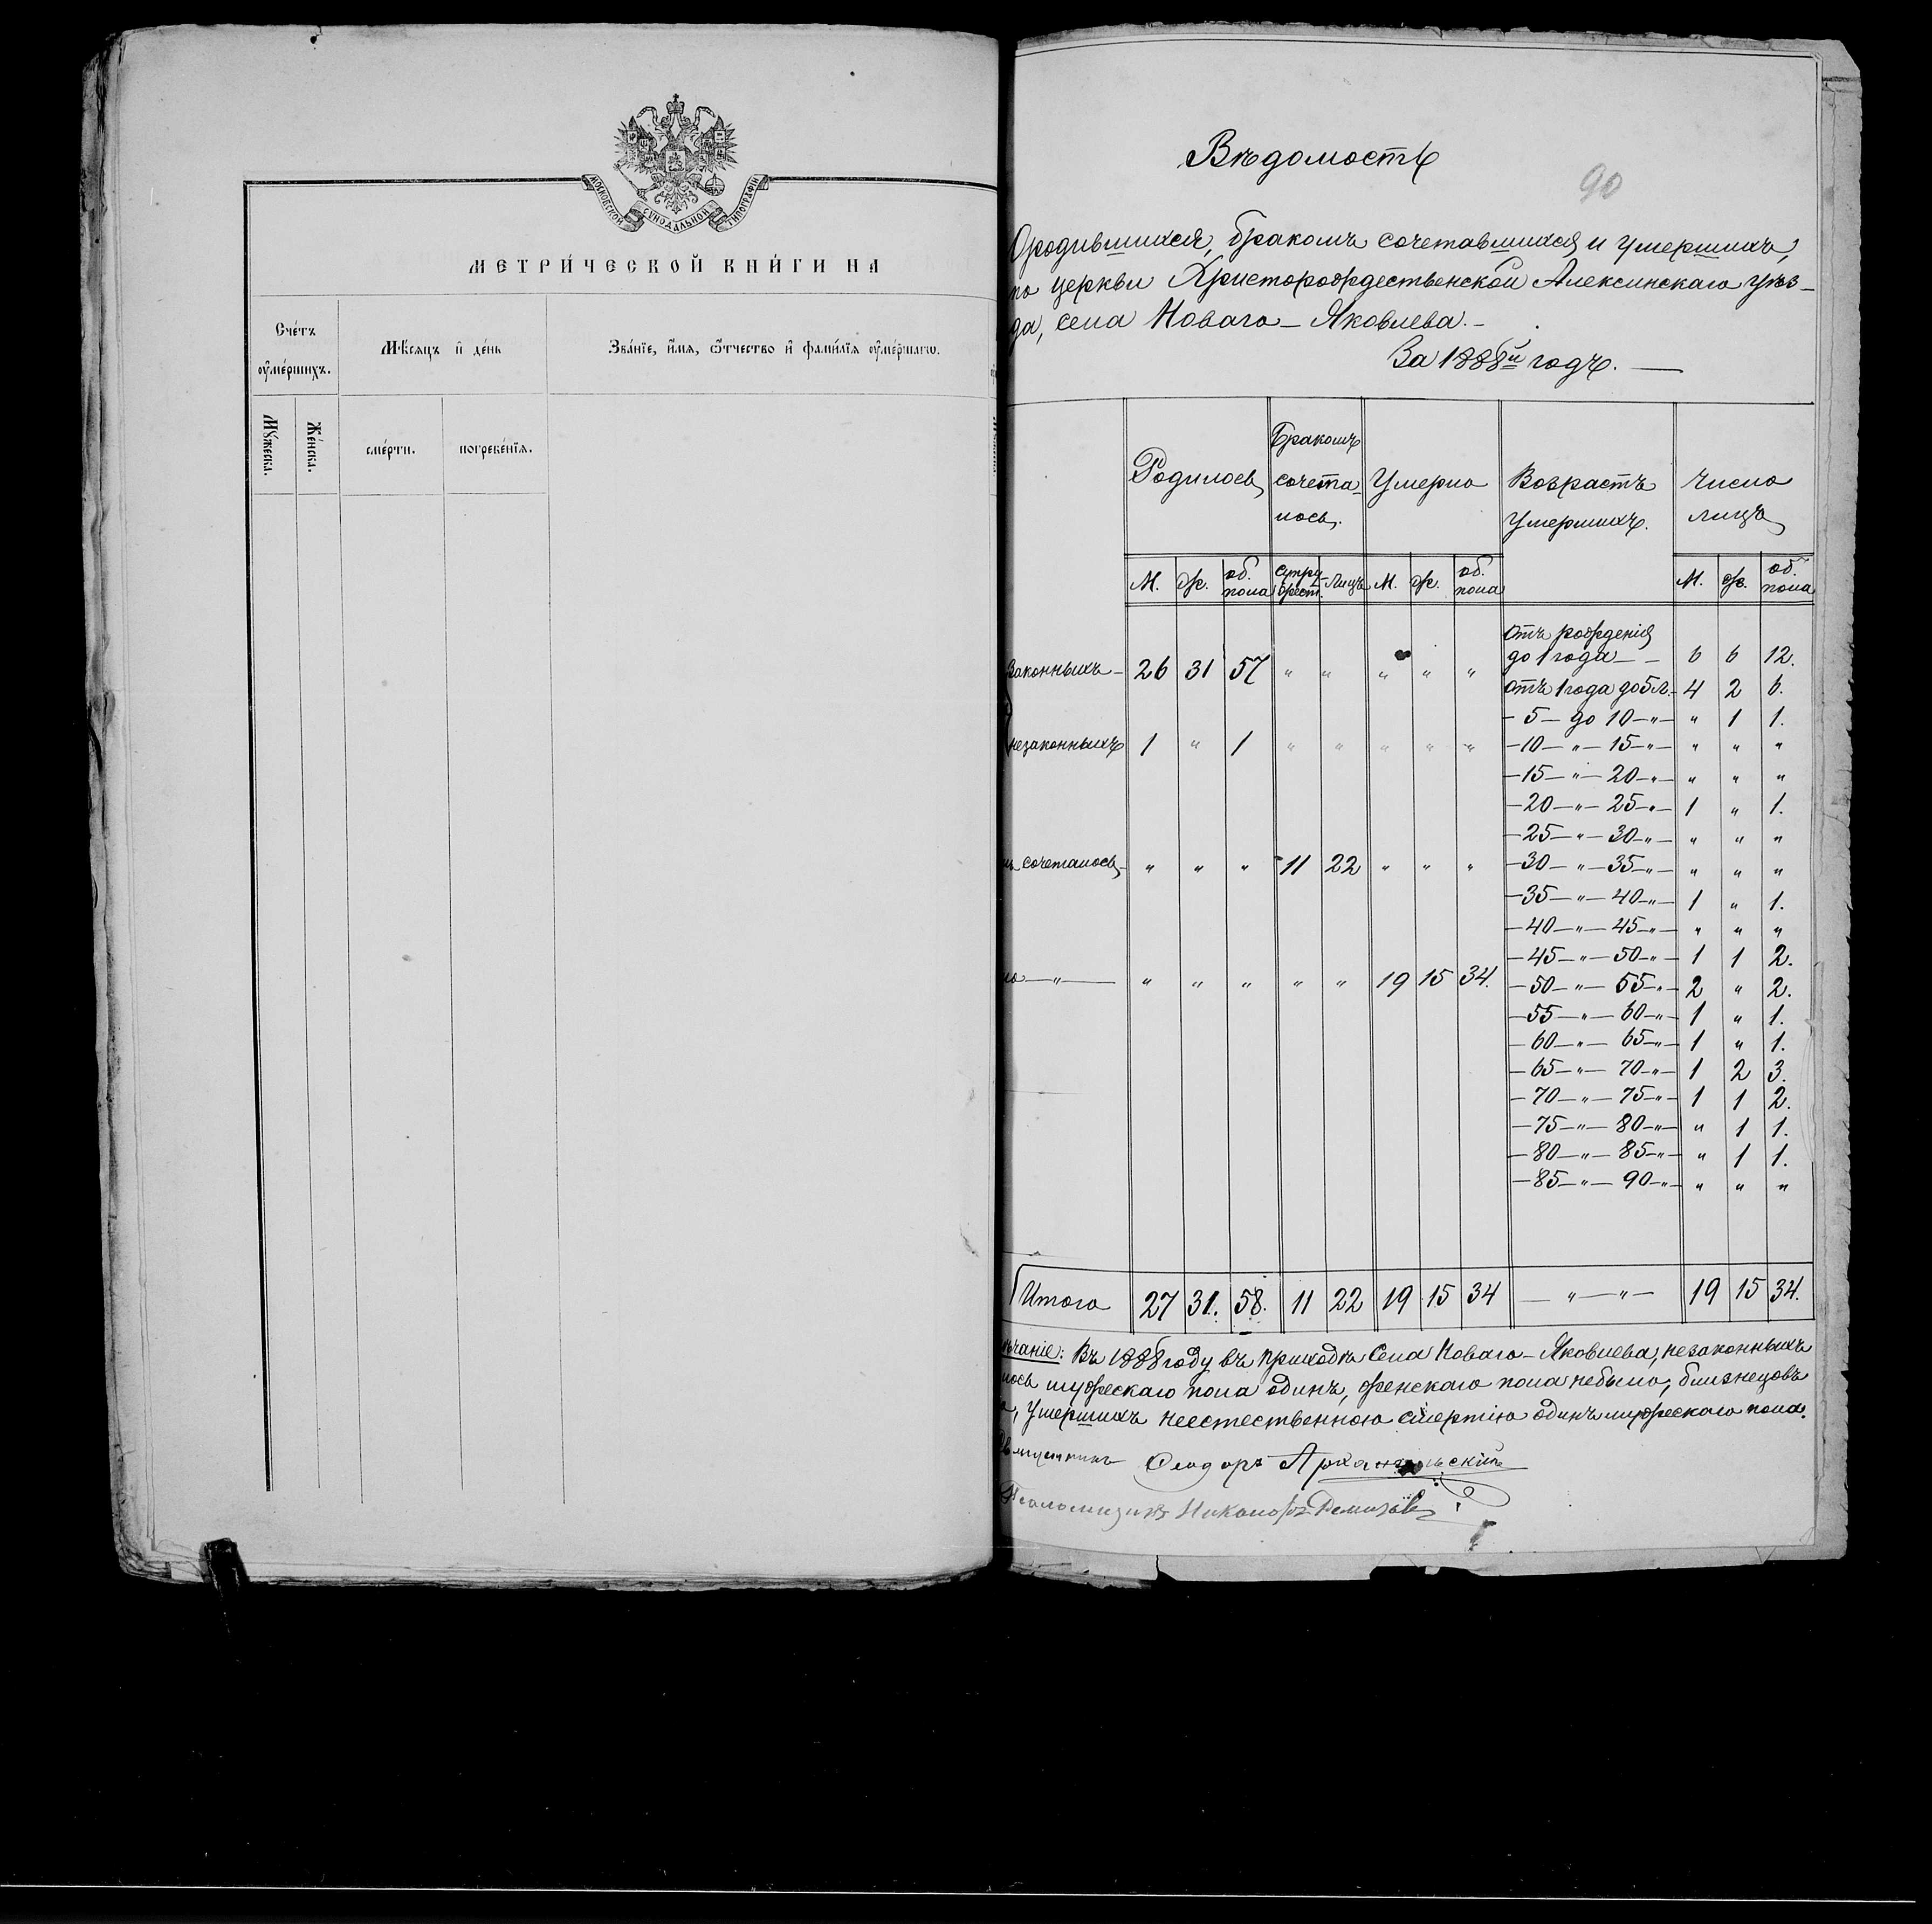 МОСКОВСКОЙ СѴНОДАЛЬНОЙ ТИПОГРАФІИ
МЕТРИ́ЧЕСКОЙ КНИ́ГИ НА
Сче́тъ
оумершихъ.
Мѣ́сяцъ и де́нь
Зва́нїе, и́мя, ѻ́тчество и фами́лїя оуме́ршагѡ.
Му́жеска.
Же́нска.
сме́рти.
погребе́нїя.
Вѣдомость
90
О родившихся, бракомъ сочетавшихся и умершихъ,
по церкви Христорождественской Алексинскаго уѣз-
да, села Новаго-Яковлева.-
За 1888й годъ.
Родилось
Бракомъ
сочета-
лось.
Умерло
Возрастъ
умершихъ.
Число
лицъ
М. Ж. об. пола супружест. лицъ М. Ж. об. пола М. Ж. об. пола
отъ рожденія
до 1 года — — 6 6 12.
Законныхъ — 26 31 57 „ „ „ „ „
отъ 1 года до 5 л. — 4 2 6.
— 5 — до 10 — „ — „ 1 1.
незаконныхъ 1 „ 1 „ „ „ „ „
— 10 — „ — 15 — „ — „ „ „
— 15 — „ — 20 — „ — „ „ „
— 20 — „ — 25 — „ — 1 „ 1.
— 25 — „ — 30 — „ — „ „ „
сочеталось — „ „ „ 11 22 „ „ „
— 30 — „ — 35 — „ — „ „ „
— 35 — „ — 40 — „ — 1 „ 1.
— 40 — „ — 45 — „ — „ „ „
— 45 — „ — 50 — „ — 1 1 2.
ло — „ — „ „ „ „ „ 19 15 34.
— 50 — „ — 55 — „ — 2 „ 2.
— 55 — „ — 60 — „ — 1 „ 1.
— 60 — „ — 65 — „ — 1 „ 1.
— 65 — „ — 70 — „ — 1 2 3.
— 70 — „ — 75 — „ — 1 1 2.
— 75 — „ — 80 — „ — „ 1 1.
— 80 — „ — 85 — „ — „ 1 1.
— 85 — „ — 90 — „ — „ „ „
Итого 27 31. 58. 11 22 19 15 34 — „ — „ — 19 15 34.
чаніе: Въ 1888 году въ приходѣ села Новаго-Яковлева, незаконныхъ
лось мужескаго пола одинъ, женскаго пола небыло, близнецовъ
умершихъ неестественною смертію одинъ мужескаго пола.
Ѳеодоръ Архангельскій
Псаломщикъ Никаноръ Ремизовъ